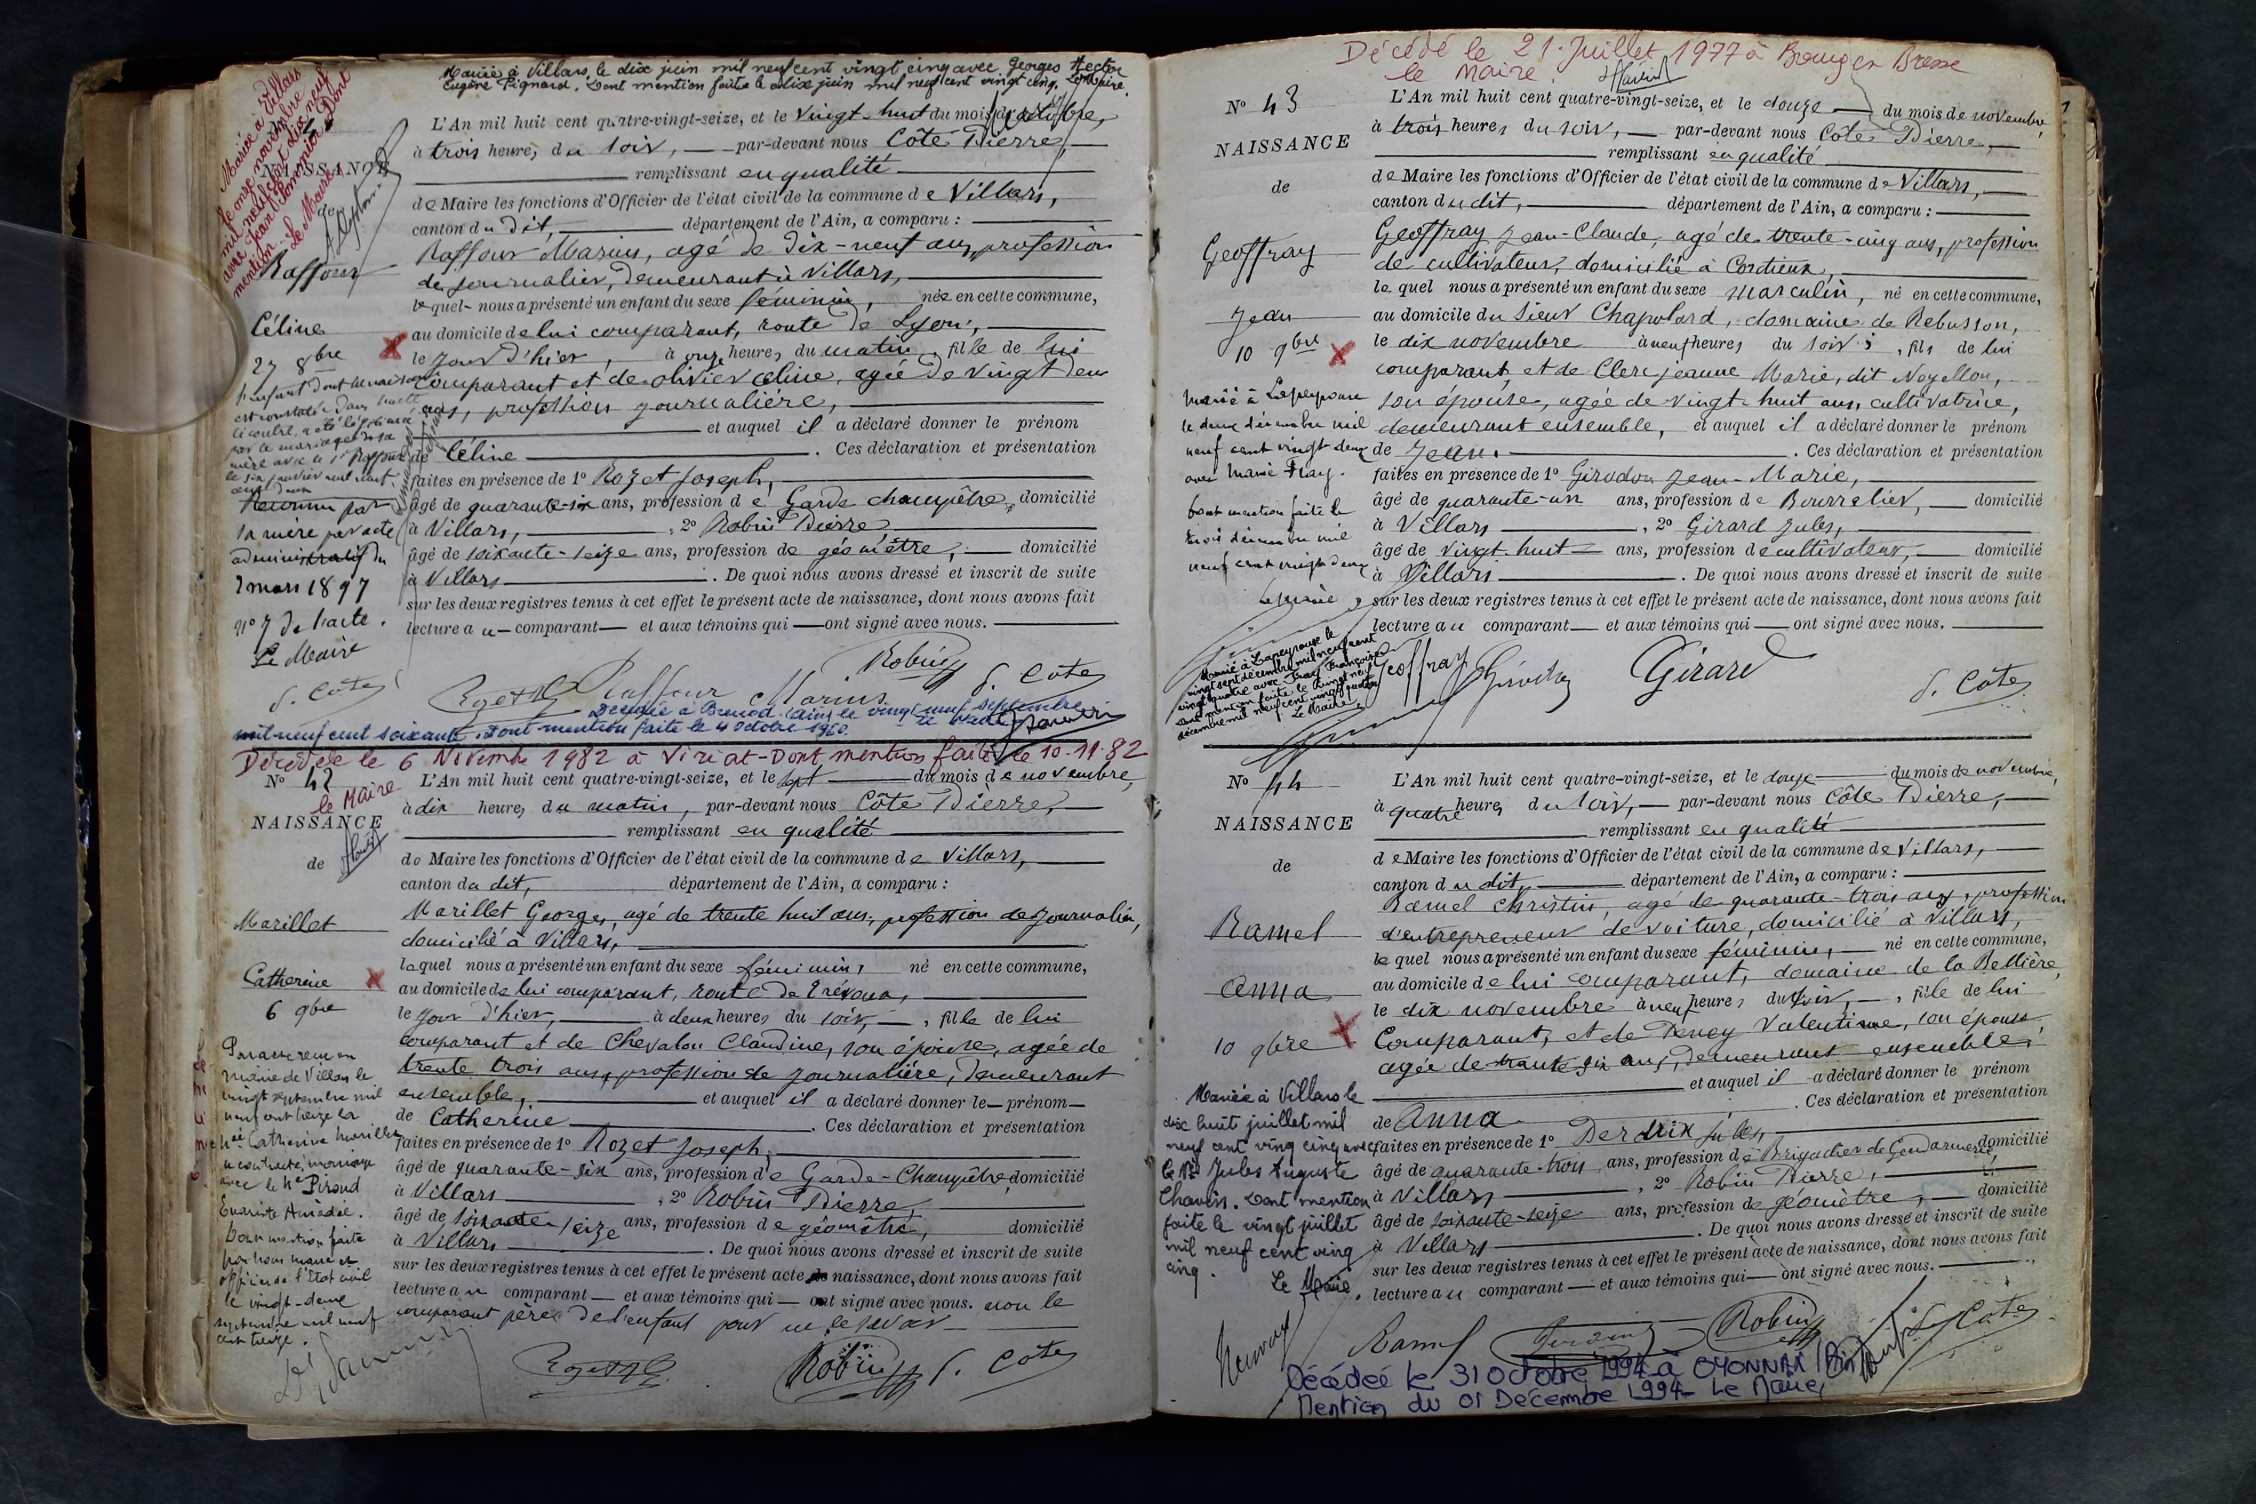 Mariée à Villars, le dix juin mil neuf cent vingt cinq avec Georges Hector
Eugène Pignard. Dont mention faite le dix juin mil neuf cent vingt cinq. Le Maire.
Mariée à Villars
le onze novembre
mil neuf cent dix neuf
avec
mention Le Maire
NAISSANCE
de
Raffour
Céline
27 8bre
L'enfant dont la naissance
est constatée dans l'acte
ci contre, a été légitimé
par le mariage de sa
mère avec le Sr Raffour
le six janvier mil neuf
cent
Reconnu par
la mère par acte
administratif du
2 mars 1897
n° 7 de l'acte.
Le Maire
P. Cote
L'An mil huit cent quatre-vingt-seize, et le vingt-huit du mois d'octobre,
à trois heures du soir, par-devant nous Côte Pierre,
remplissant en qualité
de Maire les fonctions d'Officier de l'état civil de la commune de Villars,
canton du dit, département de l'Ain, a comparu :
Raffour Marius, agé de dix-neuf ans, profession
de journalier, demeurant à Villars,
lequel nous a présenté un enfant du sexe féminin, née en cette commune,
au domicile de lui comparant, route de Lyon,
le jour d'hier, à onze heures du matin, fille de lui
comparant et de Olivier Celine, agée de vingt deux
ans, profession journalière,
et auquel il a déclaré donner le prénom
de Céline . Ces déclaration et présentation
faites en présence de 1° Rozet Joseph,
âgé de quarante-six ans, profession de Garde champêtre, domicilié
à Villars, , 2° Robin Pierre
âgé de soixante-seize ans, profession de géomètre, domicilié
à Villars . De quoi nous avons dressé et inscrit de suite
sur les deux registres tenus à cet effet le présent acte de naissance, dont nous avons fait
lecture au comparant et aux témoins qui ont signé avec nous.
Rozet Raffour Marius Robin P. Cote
Décédée à Brenod (Ain) le vingt neuf septembre
mil neuf cent soixante. Dont mention faite le 4 octobre 1960. Le Maire
Décédée le 6 Novembre 1982 à Viriat - Dont mention faite le 10-11-82
le Maire
N° 42
NAISSANCE
de
Marillet
Catherine
6 9bre
Par acte reçu en
mairie de Villars le
vingt septembre mil
neuf cent treize la
née Catherine Marillet
a contracté mariage
avec le né Piroud
Evariste Amédée.
Dont mention faite
par nous maire et
officier de l'Etat civil
le vingt-deux
septembre mil neuf
cent treize.
L'An mil huit cent quatre-vingt-seize, et le sept du mois de novembre,
à dix heures du matin, par-devant nous Côte Pierre,
remplissant en qualité
de Maire les fonctions d'Officier de l'état civil de la commune de Villars,
canton du dit, département de l'Ain, a comparu :
Marillet George, agé de trente huit ans, profession de journalier,
domicilié à Villars,
lequel nous a présenté un enfant du sexe féminin, né en cette commune,
au domicile de lui comparant, route de Trévoux,
le jour d'hier, à deux heures du soir, , fille de lui
comparant et de Chevalon Claudine, son épouse, agée de
trente trois ans, profession de journalière, demeurant
ensemble, et auquel il a déclaré donner le prénom
de Catherine . Ces déclaration et présentation
faites en présence de 1° Rozet Joseph,
âgé de quarante-six ans, profession de Garde-Champêtre, domicilié
à Villars , 2° Robin Pierre,
âgé de soixante seize ans, profession de géomètre, domicilié
à Villars . De quoi nous avons dressé et inscrit de suite
sur les deux registres tenus à cet effet le présent acte de naissance, dont nous avons fait
lecture au comparant et aux témoins qui ont signé avec nous. non le
comparant père de l'enfant pour ne le savoir
Rozet Robin P. Cote
Décédé le 21 Juillet 1977 à Bourg en Bresse
le Maire.
N° 43
NAISSANCE
de
Geoffray
Jean
10 9bre
Marié à Lapeyrouse
le deux décembre mil
neuf cent vingt deux
avec Marie Fray.
Dont mention faite le
trois décembre mil
neuf cent vingt deux
Le Maire,
Marié à Lapeyrouse le
vingt sept décembre mil neuf cent
vingt quatre avec Fray Françoise
dont mention faite le vingt neuf
décembre mil neuf cent vingt quatre
Le Maire
L'An mil huit cent quatre-vingt-seize, et le douze du mois de novembre,
à trois heures du soir, par-devant nous Côte Pierre,
remplissant en qualité
de Maire les fonctions d'Officier de l'état civil de la commune de Villars,
canton du dit, département de l'Ain, a comparu :
Geoffray Jean-Claude, agé de trente-cinq ans, profession
de cultivateur, domicilié à Cordieux,
lequel nous a présenté un enfant du sexe masculin, né en cette commune,
au domicile du Sieur Chapolard, domaine de Rebusson,
le dix novembre à neuf heures du soir, , fils de lui
comparant, et de Clerc Jeanne Marie, dit Noyellon,
son épouse, agée de vingt-huit ans, cultivatrice,
demeurant ensemble, et auquel il a déclaré donner le prénom
de Jean. . Ces déclaration et présentation
faites en présence de 1° Girodon Jean-Marie,
âgé de quarante-un ans, profession de Bourrelier, domicilié
à Villars , 2° Girard Jules,
âgé de vingt-huit ans, profession de cultivateur, domicilié
à Villars . De quoi nous avons dressé et inscrit de suite
sur les deux registres tenus à cet effet le présent acte de naissance, dont nous avons fait
lecture au comparant et aux témoins qui ont signé avec nous.
Geoffray Girodon Girard P. Cote
N° 44
NAISSANCE
de
Ramel
Anna
10 9bre
Mariée à Villars le
dix huit juillet mil
neuf cent ving cinq avec
le Sr Jules Auguste
Chanvin. Dont mention
faite le vingt juillet
mil neuf cent ving
cinq.
Le Maire.
L'An mil huit cent quatre-vingt-seize, et le douze du mois de novembre,
à quatre heures du soir, par-devant nous Côte Pierre,
remplissant en qualité
de Maire les fonctions d'Officier de l'état civil de la commune de Villars,
canton du dit, département de l'Ain, a comparu :
Ramel Christin, agé de quarante-trois ans, profession
d'entrepreneur de voiture, domicilié à Villars,
lequel nous a présenté un enfant du sexe féminin, né en cette commune,
au domicile de lui comparant, domaine de la Bellière,
le dix novembre à neuf heures du soir, , fille de lui
Comparant, et de Valentine, son épouse
agée de trente six ans, demeurant ensemble,
et auquel il a déclaré donner le prénom
de Anna . Ces déclaration et présentation
faites en présence de 1° Jules,
âgé de quarante-trois ans, profession de Brigadier de Gendarmerie, domicilié
à Villars , 2° Robin Pierre,
âgé de soixante-seize ans, profession de géomètre, domicilié
à Villars . De quoi nous avons dressé et inscrit de suite
sur les deux registres tenus à cet effet le présent acte de naissance, dont nous avons fait
lecture au comparant et aux témoins qui ont signé avec nous.
Ramel Robin P. Cote
Décédée le 31 Octobre 1994 à OYONNAX (Ain)
Mention du 01 Décembre 1994 - Le Maire,